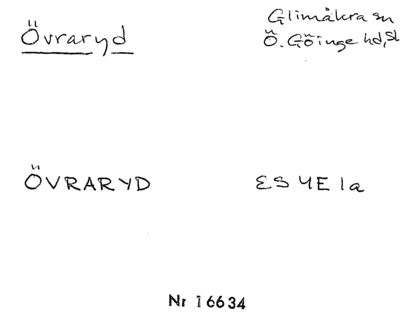 Övraryd
Glimåkra sn
Ö. Göinge hd, Sk
ÖVRARYD
ES 4E 1a
Nr 16634